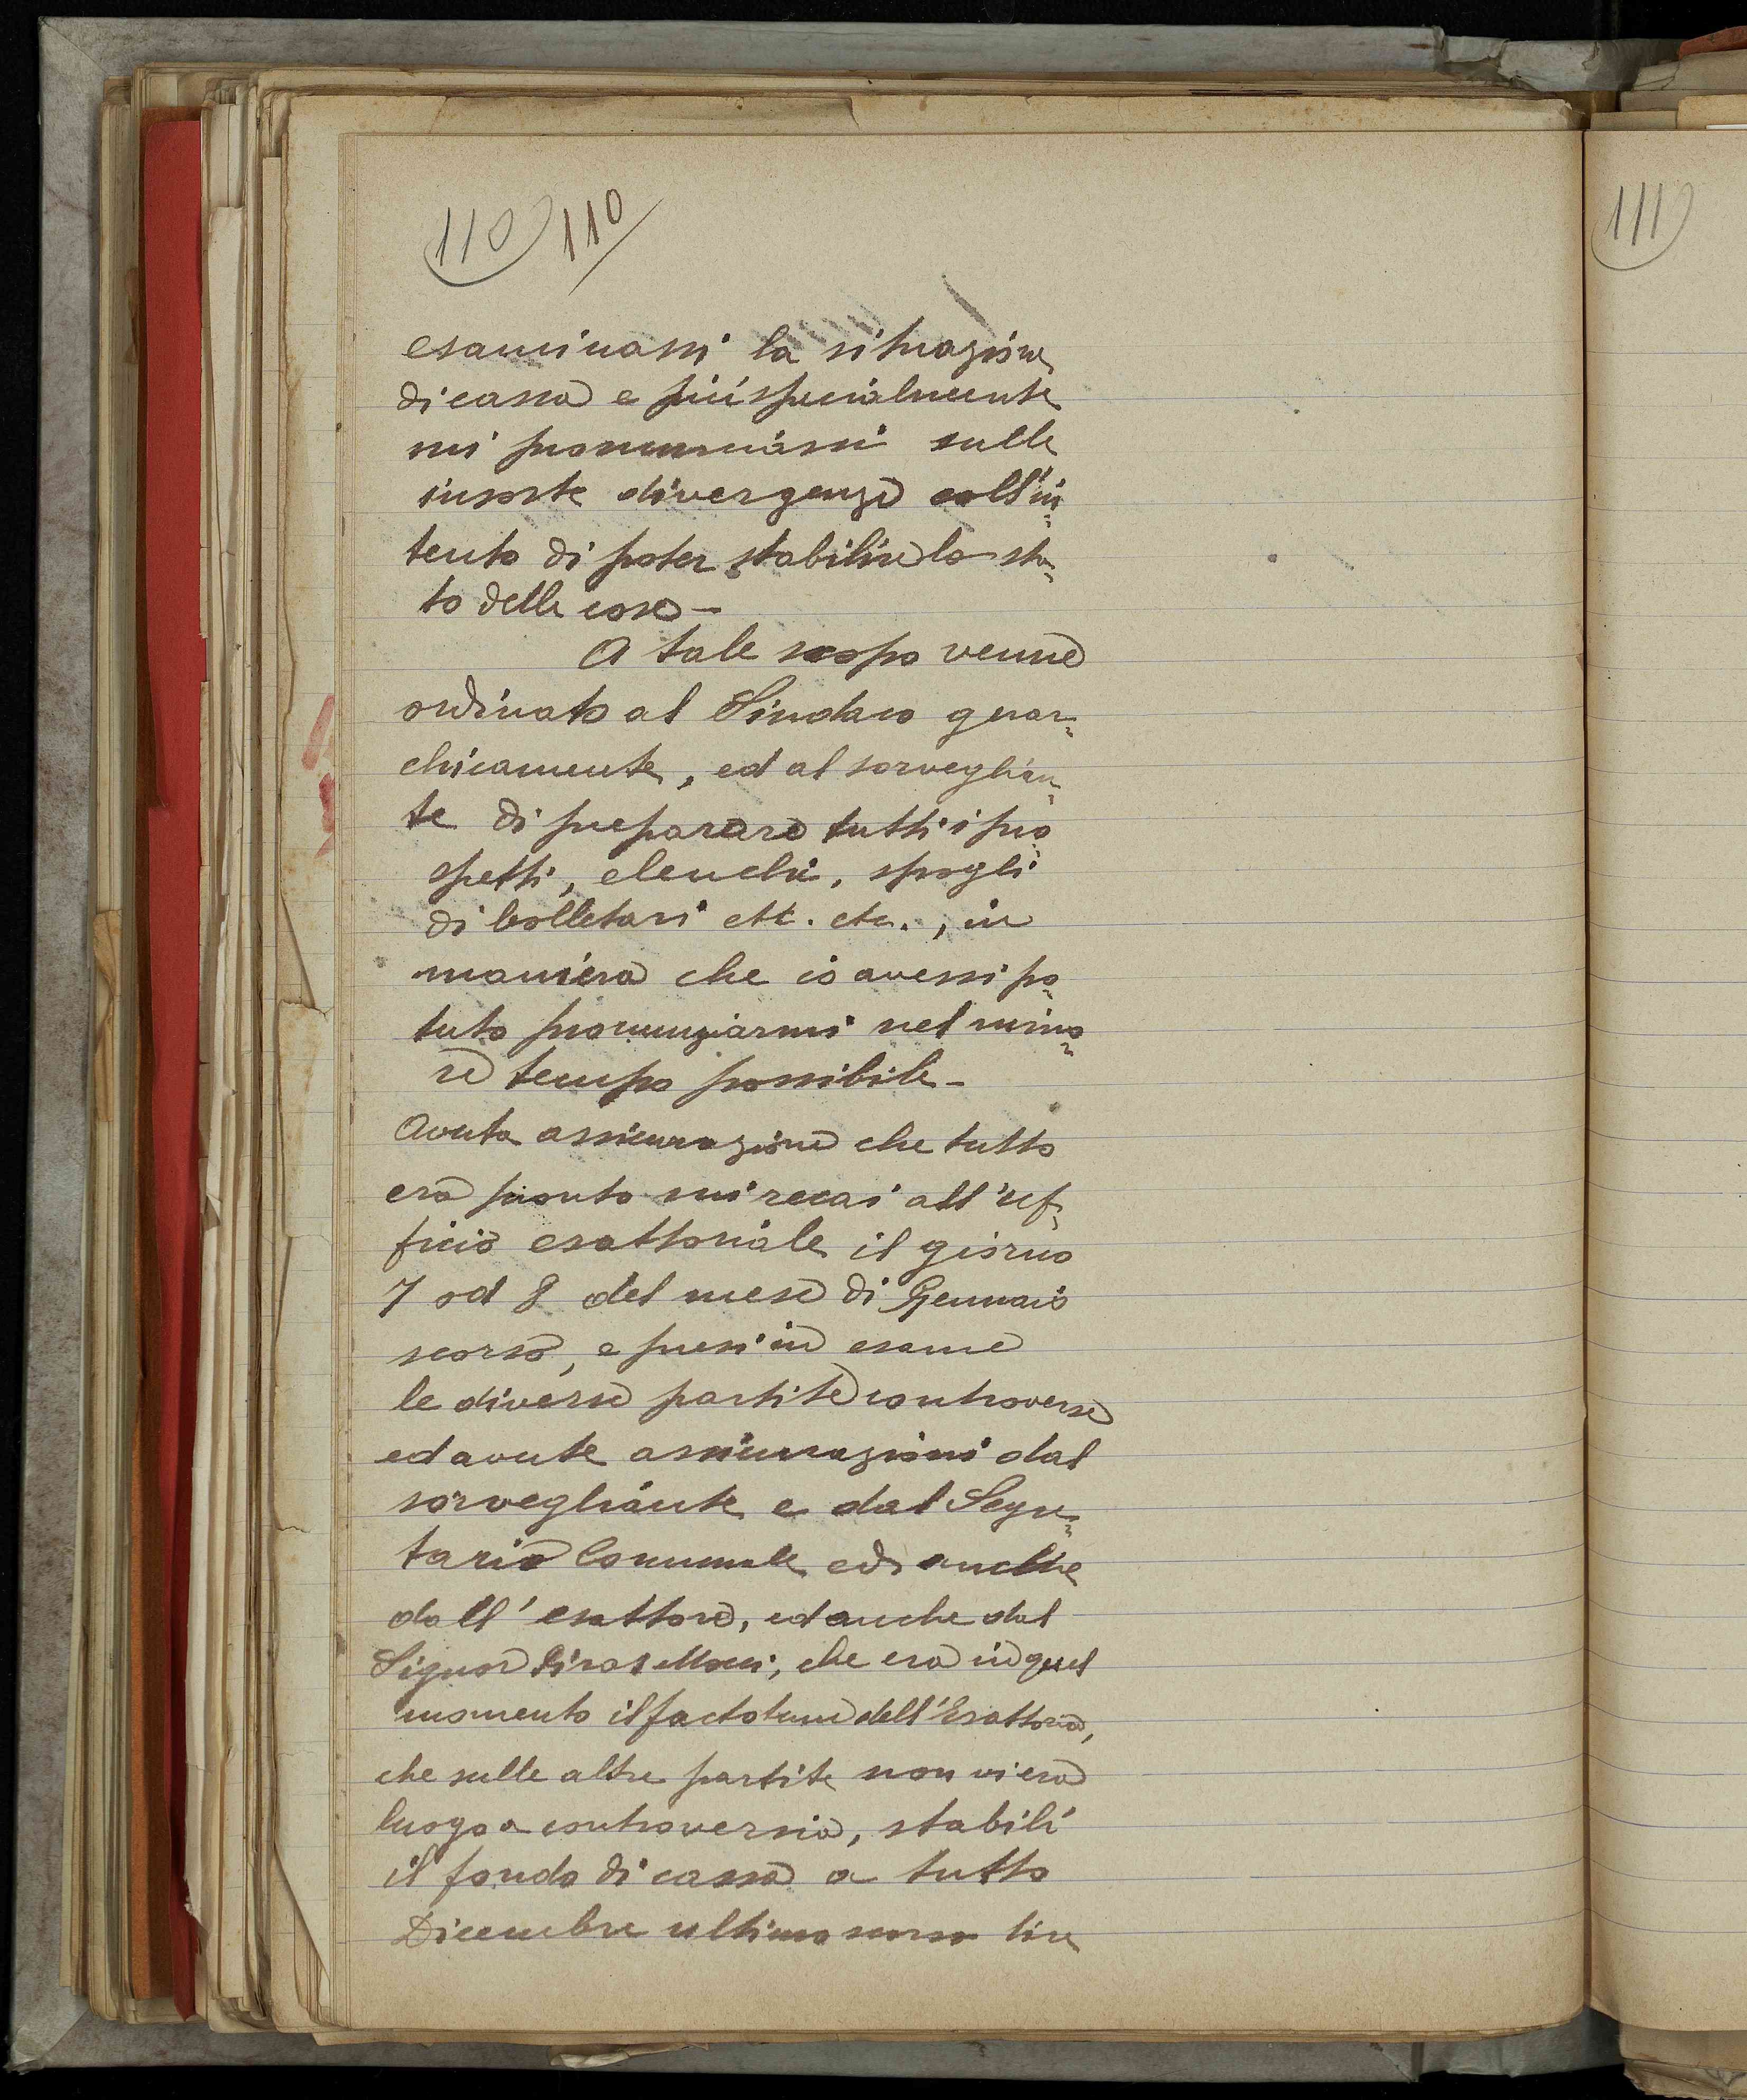 110 110
111
esaminassi la situazione
di cassa e più specialmente
mi pronunciassi sulle
insorte divergenze coll'in
tento di poter stabilire lo sta
to delle cose -
A tale scopo venne
ordinato al Sindaco gerar
chicamente, ed al sorveglian
te di preparare tutti i pro
spetti, elenchi, spogli
di bolletari ett. etc., in
maniera che io avessi po
tuto pronunziarmi nel mino
re tempo possibile -
Avuta assicurazione che tutto
era pronto mi recai all'uf
ficio esattoriale il giorno
7 od 8 del mese di Gennaio
scorso, e presi in esame
le diverse partite controverse
ed avute assicurazioni dal
sorvegliante e dal Segre
tario Comunale ed anche
dall'esattore, ed anche dal
Signor che era in quel
momento il factotum dell'Esattoria,
che sulle altre partite non vi era
luogo a controversia, stabilì
il fondo di cassa a tutto
Dicembre ultimo scorso lire